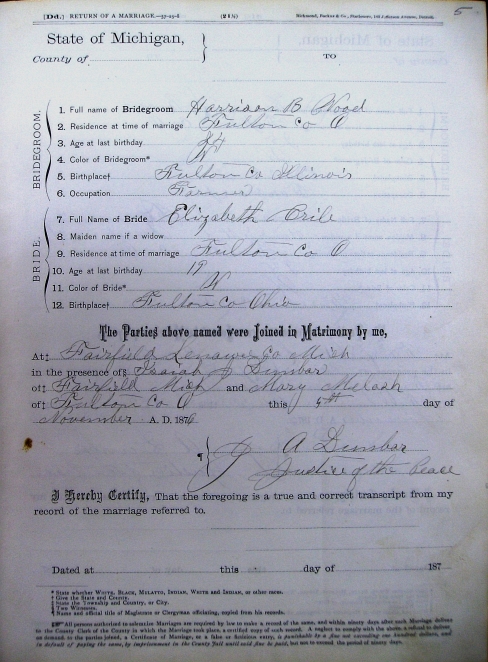 [Dd.] RETURN OF A MARRIAGE—37-25-8 (218) Richmond, Backus & Co., Stationers, 183 Jefferson Avenue, Detroit.
5
State of Michigan,
County of
TO
BRIDEGROOM.
1. Full name of Bridegroom Harrison B Wood
2. Residence at time of marriage Fulton Co O
3. Age at last birthday 24
4. Color of Bridegroom* W
5. Birthplace† Fulton Co Illinois
6. Occupation Farmer
BRIDE.
7. Full Name of Bride Elizabeth Crile
8. Maiden name if a widow
9. Residence at time of marriage Fulton Co O
10. Age at last birthday 19
11. Color of Bride* W
12. Birthplace† Fulton Co Ohio
The Parties above named were Joined in Matrimony by me,
At‡ Fairfield Lenawee Co Mich
in the presence of§ Isaiah J Dunbar
of‡ Fairfield Mich and Mary
of‡ Fulton Co O this 5th day of
November A. D. 1876
¶ J A Dunbar
Justice of the Peace
I Hereby Certify, That the foregoing is a true and correct transcript from my
record of the marriage referred to.
Dated at this day of 187
* State whether WHITE, BLACK, MULATTO, INDIAN, WHITE and INDIAN, or other races.
† Give the State and County.
‡ State the Township and Country, or City.
§ Two Witnesses.
¶ Name and official title of Magistrate or Clergyman officiating, copied from his records.
All persons authorized to solemnize Marriages are required by law to make a record of the same, and within ninety days after such Marriage deliver
to the County Clerk of the County in which the Marriage took place, a certified copy of such record. A neglect to comply with the above, a refusal to deliver,
on demand, to the parties joined, a Certificate of Marriage, or a false or fictitious entry, is punishable by a fine not exceeding one hundred dollars, and
in default of paying the same, by imprisonment in the County Jail until said fine be paid, but not to exceed the period of ninety days.